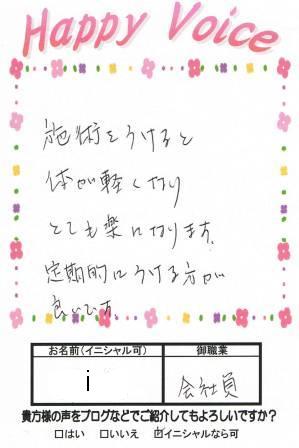 Happy Voice
施術をうけると
体が軽くなり
とても楽になります。
定期的にうける方が
良いです。
お名前(イニシャル可) 御職業
i 会社員
貴方様の声をブログなどでご紹介してもよろしいですか?
□はい □いいえ ☑イニシャルなら可